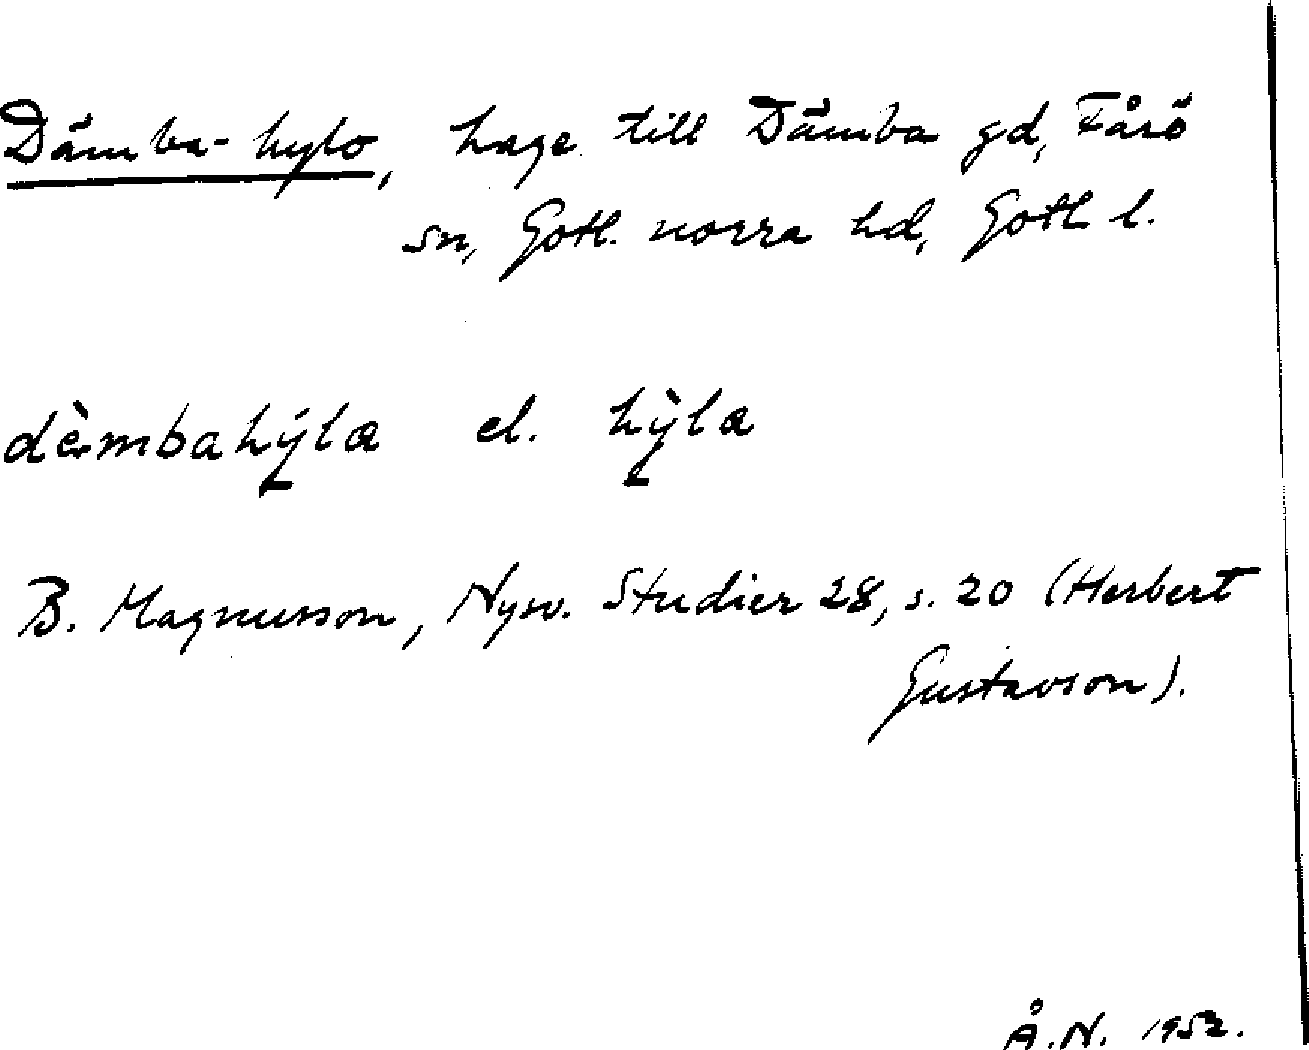 Dämba-hylo, hage till Dämba gd, Fårö
sn, Gotl. norra hd, Gotl l.
dèmbahýlа el. hỳla
B. Magnusson, Nysv. Studier 28, s. 20 (Herbert
Gustavson).
Å.N. 1952.